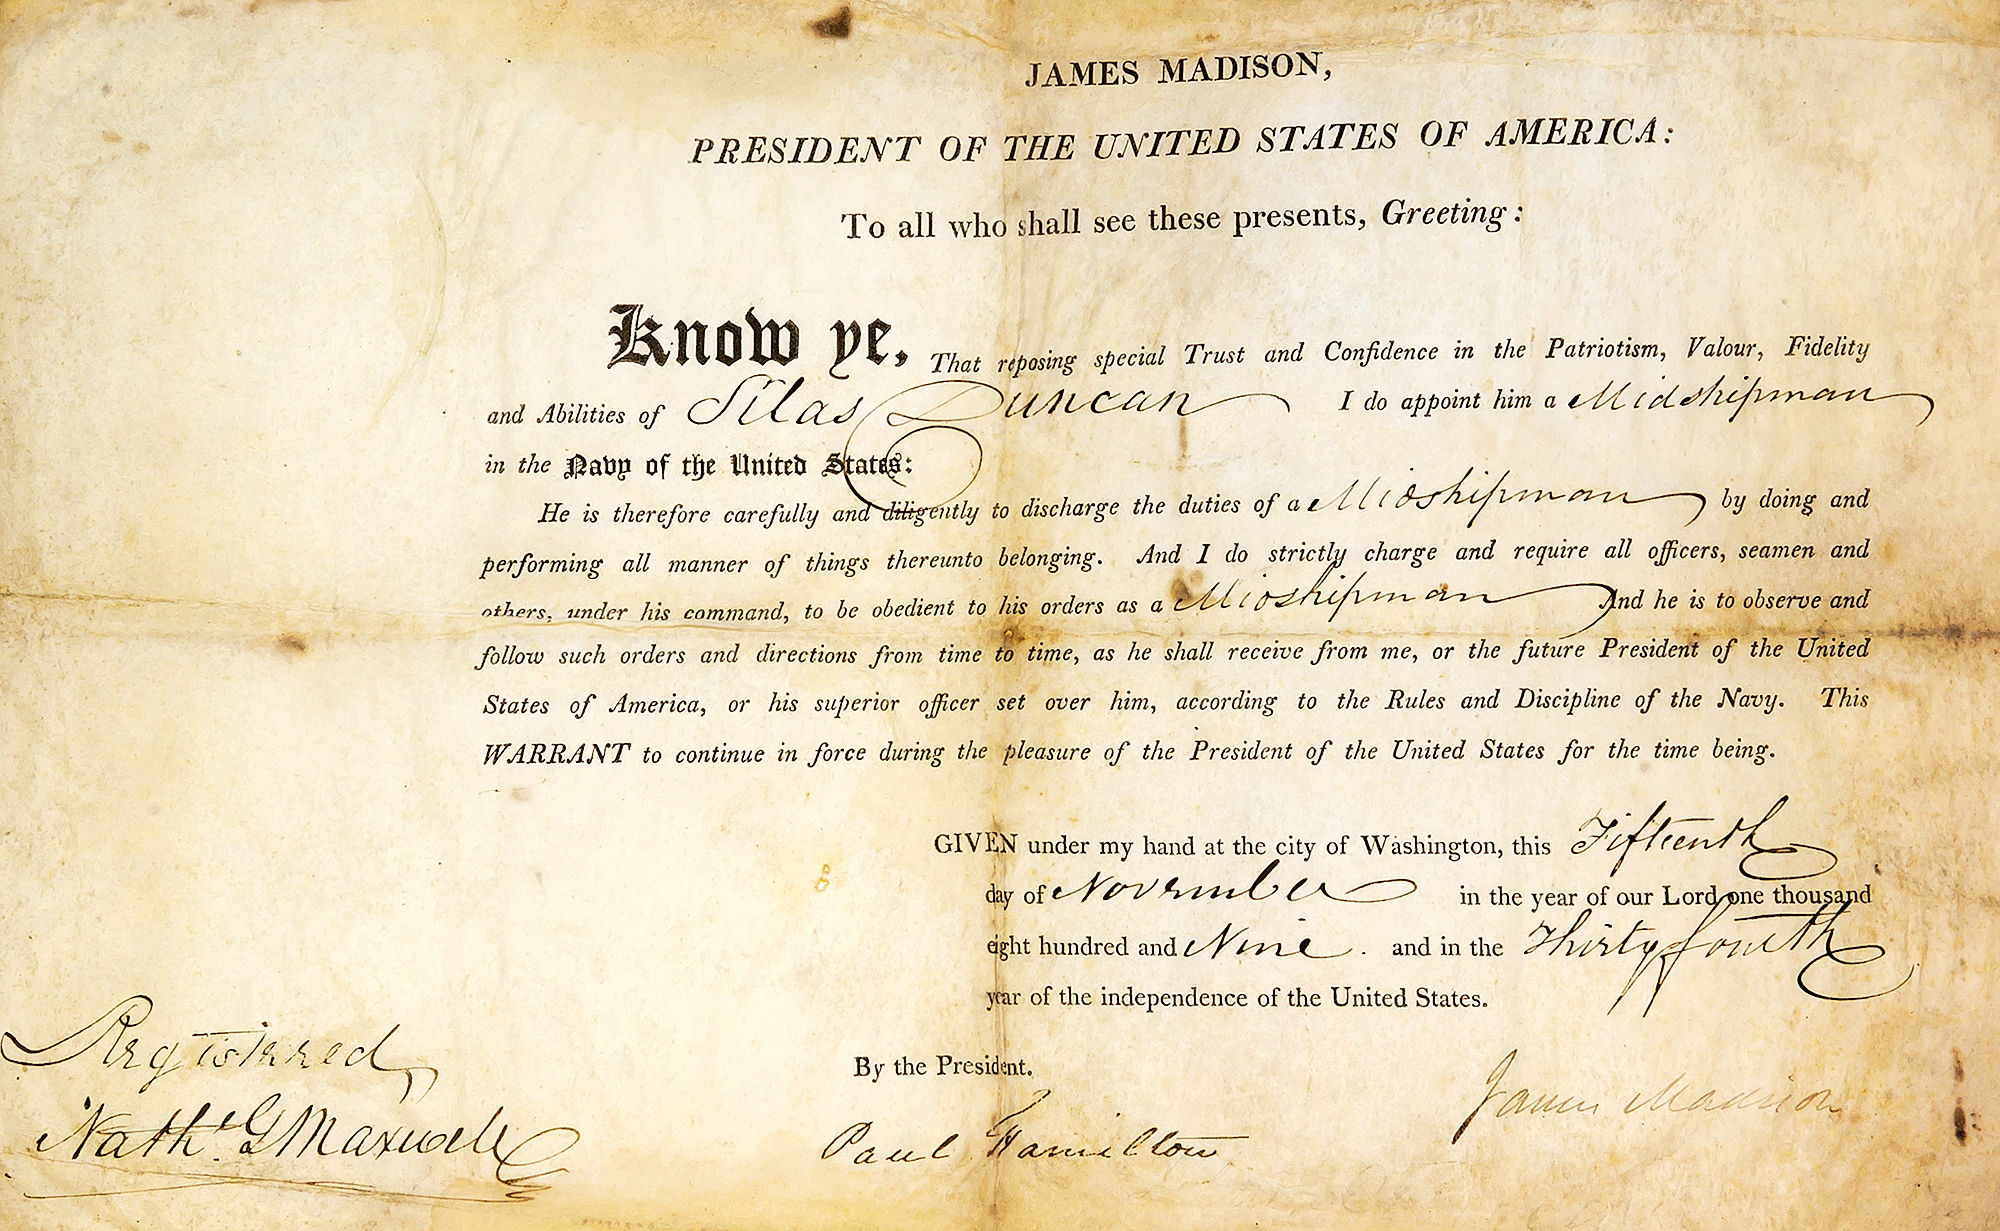 JAMES MADISON,
PRESIDENT OF THE UNITED STATES OF AMERICA:
To all who shall see these presents, Greeting:
Know ye, That reposing special Trust and Confidence in the Patriotism, Valour, Fidelity
and Abilities of Silas Duncan I do appoint him a Midshipman
in the Navy of the United States:
He is therefore carefully and diligently to discharge the duties of a Midshipman by doing and
performing all manner of things thereunto belonging. And I do strictly charge and require all officers, seamen and
others, under his command, to be obedient to his orders as a Midshipman And he is to observe and
follow such orders and directions from time to time, as he shall receive from me, or the future President of the United
States of America, or his superior officer set over him, according to the Rules and Discipline of the Navy. This
WARRANT to continue in force during the pleasure of the President of the United States for the time being.
GIVEN under my hand at the city of Washington, this Fifteenth
day of November in the year of our Lord one thousand
eight hundred and Nine . and in the Thirty fourth
year of the independence of the United States.
Registered,
By the President.
James Madison
Nathl. G Maxwell
Paul Hamilton